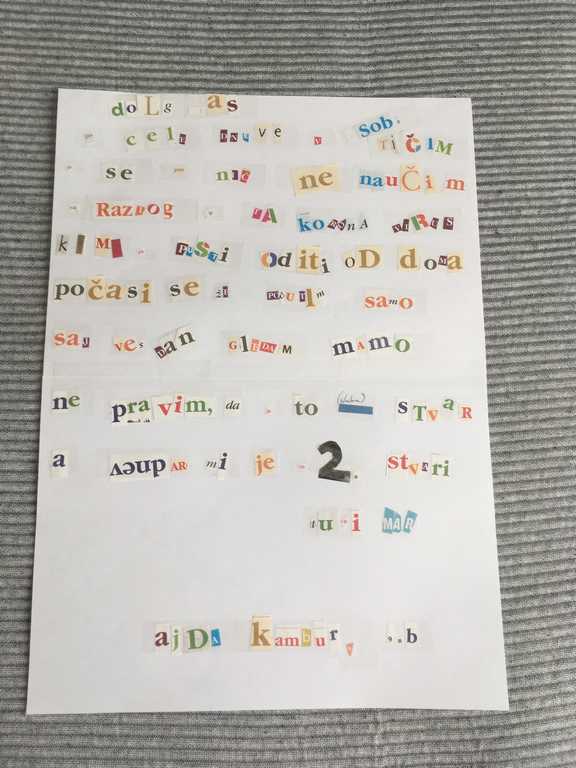 dOLg as
cele DNEVE v sobi tičim
se nič ne naučim
Razlog TA korona virus
ki Mi pusti oditi oD doma
počasi se ži počutim samo
saj ves dan GlEDAM mamo
ne pravim, da to (slaba) sTvaR
a vendar mi je 2. stvari
tudi MAR
ajDA kambur,